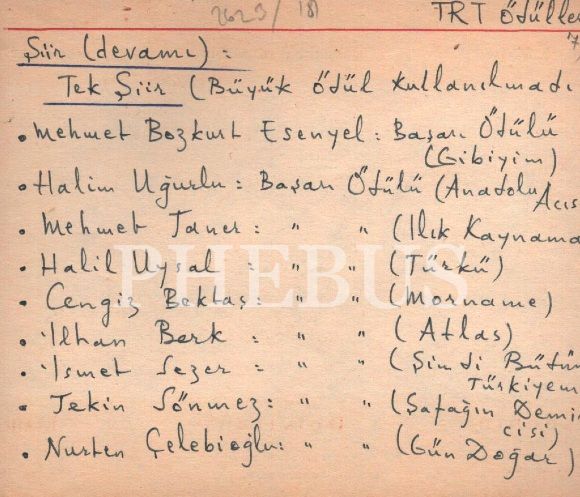 2623/181
TRT Ödülle
Şiir (devamı) :
Tek Şiir (Büyük Ödül kullanılmadı
• Mehmet Bozkurt Esenyel : Başarı Ödülü
(Gibiyim)
• Halim Uğurlu : Başarı Ödülü (Anadolu
Acıs
• Mehmet Taner : " " (Ilık Kaynama
• Halil Uysal : " " (Türkü)
• Cengiz Bektaş : " " (Morname)
• İlhan Berk : " " (Atlas)
• İsmet Sezer : " " (Şimdi Bütün
Türkiyem
• Tekin Sönmez : " " (Şafağın Demir
cisi)
• Nurten Çelebioğlu : " " (Gün Doğar)
PHEBUS